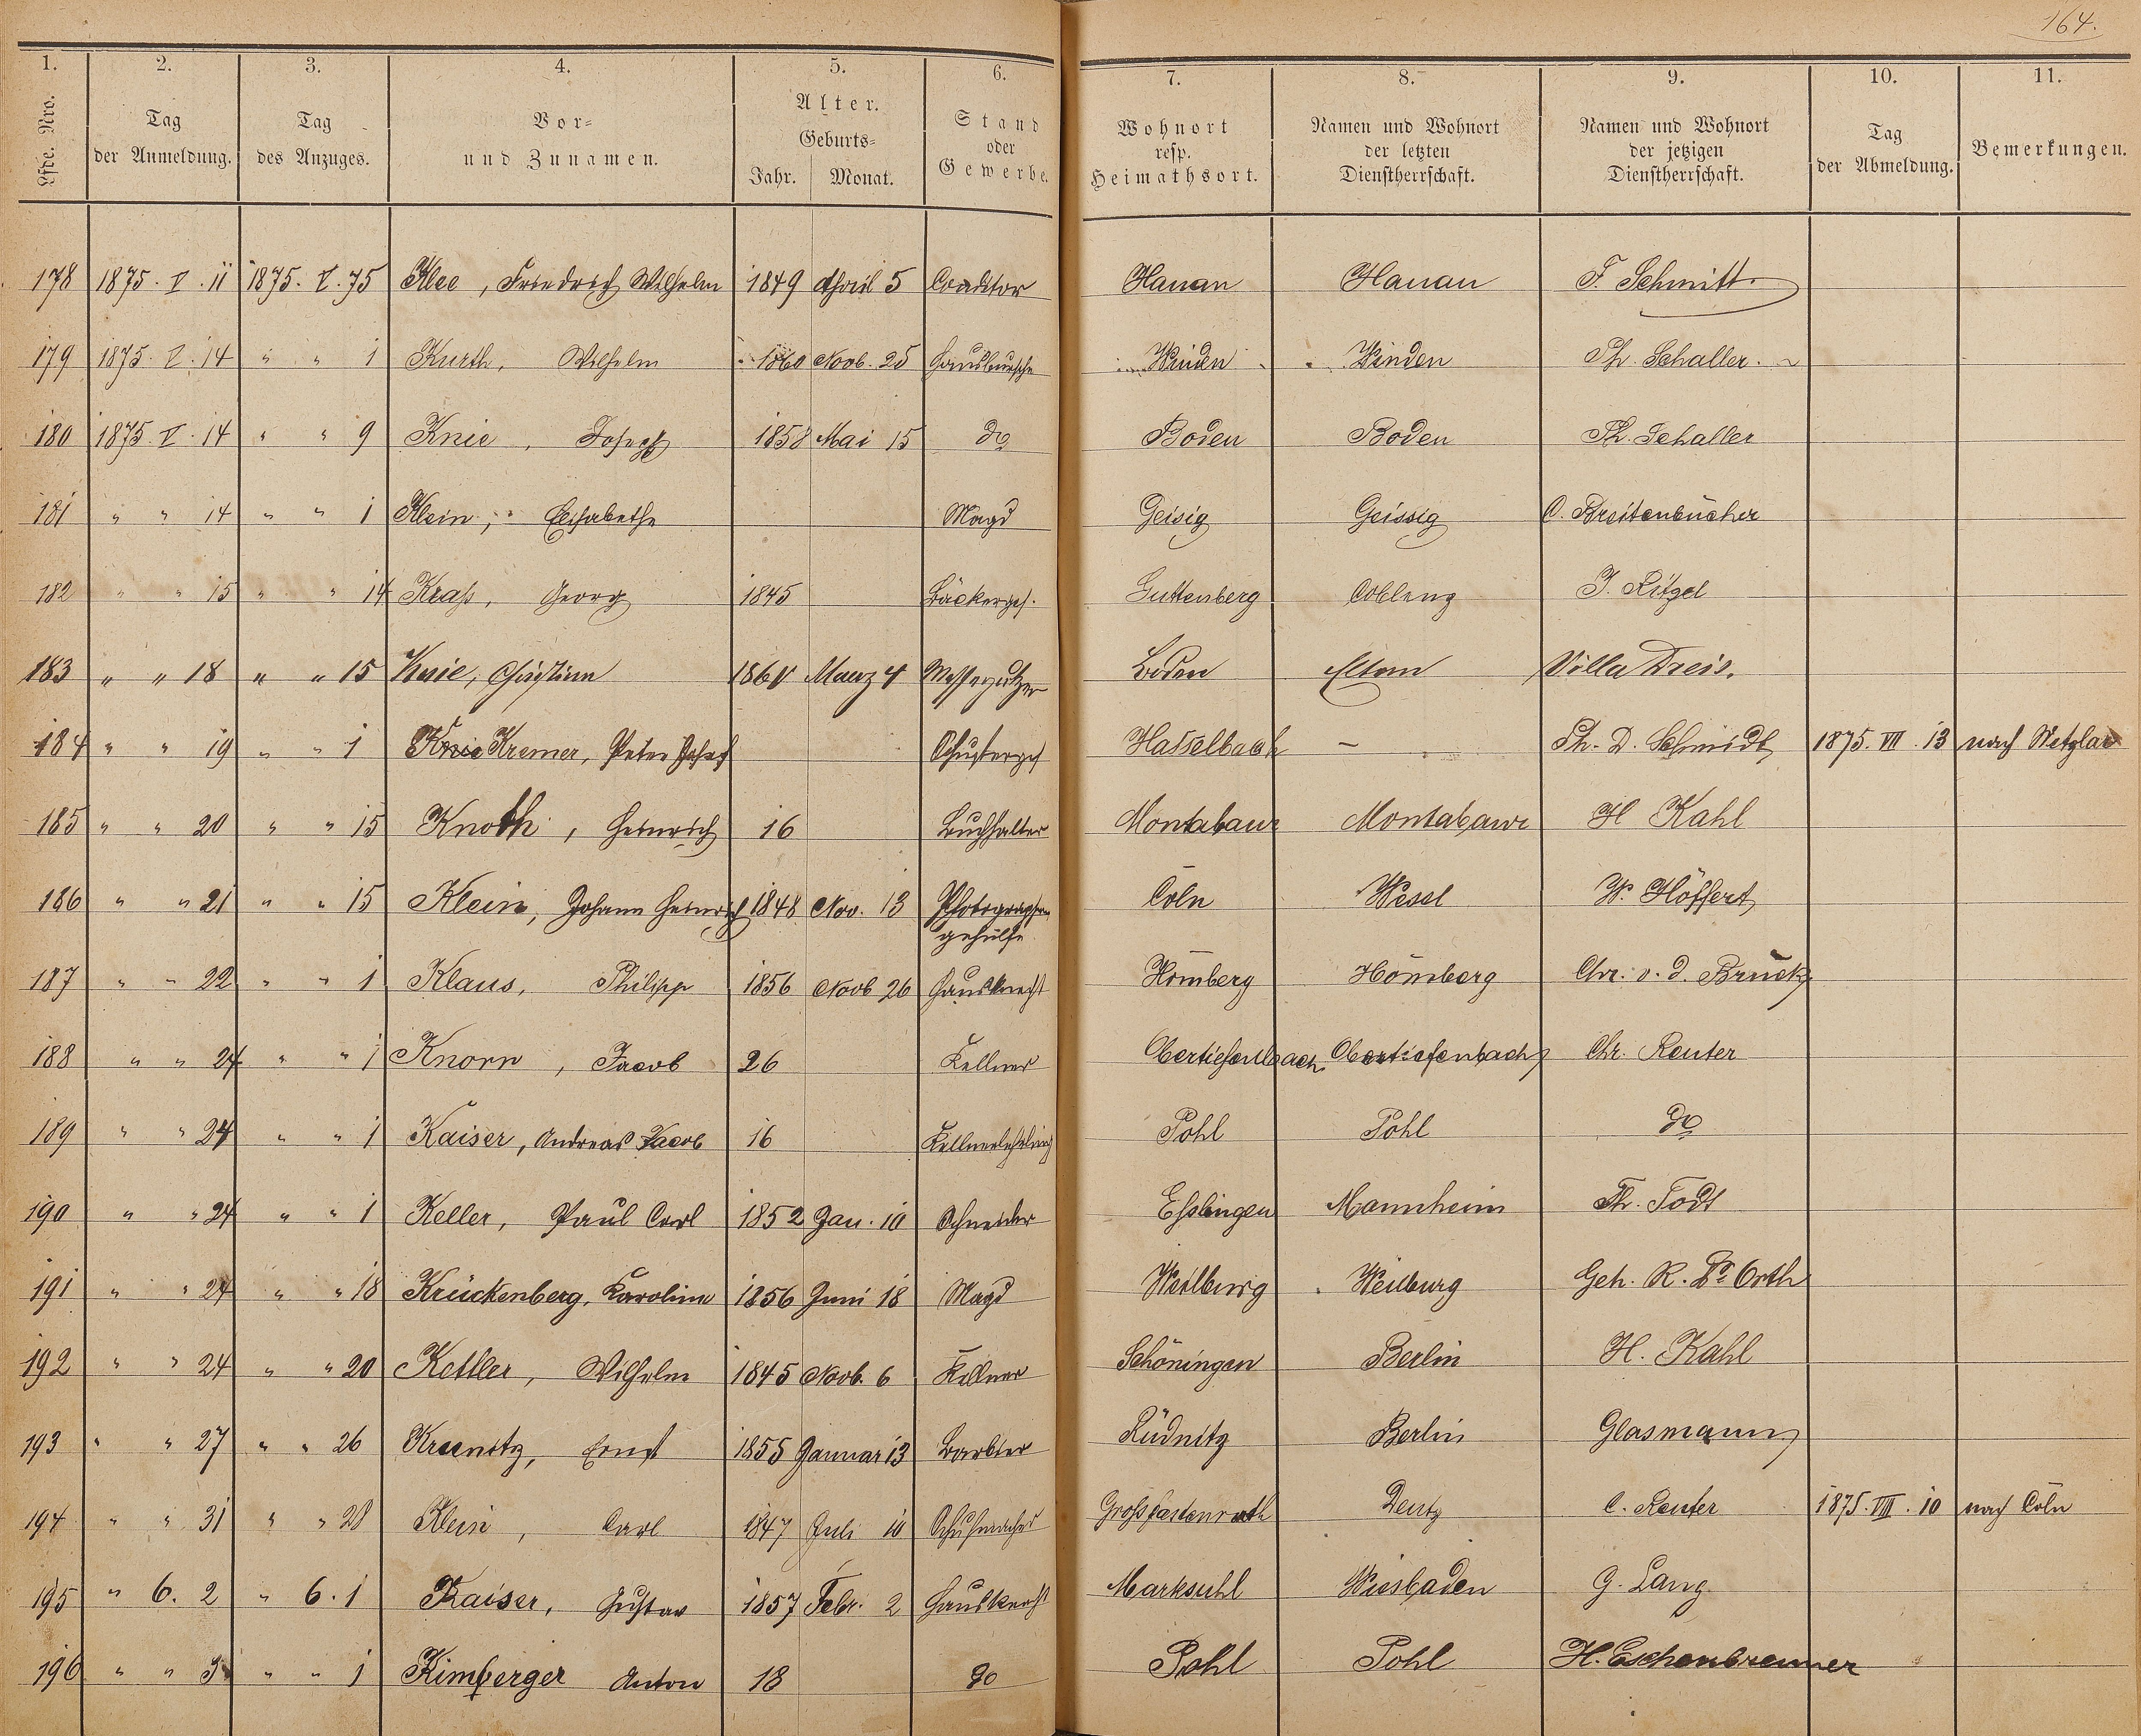 164.
1. 2. 3. 4. 5. 6. 7. 8. 9. 10. 11.
Lfde. Nro. Tag der Anmeldung. Tag des Anzuges. Vor- und Zunamen. Alter. Geburts- Jahr. Monat. Stand oder Gewerbe. Wohnort resp. Heimathsort. Namen und Wohnort der letzten Dienstherrschaft. Namen und Wohnort der jetzigen Dienstherrschaft. Tag der Abmeldung. Bemerkungen.
178 1875. V. 11 1875. V. 75 Klee, Friedrich Wilhelm 1849 April 5 Conditor Hanau Hanau F. Schmitt.
179 1875. V. 14 " " 1 Kurth, Wilhelm 1860 Novb. 25 Hausbursche Winden Winden Ph. Schaller.
180 1875. V. 14 " " 9 Knie, Joseph 1858 Mai 15 do Boden Boden Ph. Schaller
181 " " 14 " " 1 Klein, Elisabethe Magd Geisig Geissig C. Breitenbücher
182 " " 15 " " 14 Krass, Georg 1845 Bäckerges. Guttenberg Coblenz J. Ritzel
183 " " 18 " " 15 Knie, Christian Maerz 4 Messerputzer Boden Villa Dreis.
184 " " 19 " " 1 Knie Kremer, Peter Josef Schusterges Hasselbach — Ph. D. Schmidt 1875. VII. 13 nach Wetzlar
185 " " 20 " " 15 Knoth, Heinrich 16 Buchhalter Montabaur Montabaur H Kahl
186 " " 21 " " 15 Klein, Johann Heinrich 1848 Nov. 13 Photographengehülfe Cöln Wesel W. Höffert
187 " " 22 " " 1 Klaus, Philipp 1856 Novb 26 Hausknecht Homberg Homberg Chr. v. d. Brück
188 " " 24 " " 1 Knorr, Jacob 26 Kellner Obertiefenbach Obertiefenbach Chr. Reuter
189 " " 24 " " 1 Kaiser, Andreas Jacob 16 Kellnerlehrling Pohl Pohl do
190 " " 24 " " 1 Keller, Paul Carl 1852 Jan. 10 Schneider Esslingen Mannheim Th. Todt
191 " " 24 " " 18 Krückenberg, Karoline 1856 Juni 18 Magd Weilburg Weilburg Geh. R. Dr Orth
192 " " 24 " " 20 Kettler, Wilhelm 1845 Novb. 6 Kellner Schöningen Berlin H. Kahl
193 " " 27 " " 26 Kreenitz, Ernst 1855 Januar 13 Barbier Rüdnitz Berlin Glasmann
194 " " 31 " " 28 Klein, Carl 1847 Juli 10 Schuhmacher Grosskastenrath Deutz C. Reuter 1875. VIII. 10 nach Cöln
195 " 6. 2 " 6. 1 Kaiser, Gustav 1857 Febr. 2 Hausknecht Marksuhl Wiesbaden G. Lang.
196 " " 3 " " 1 Kimberger Anton 18 do Pohl Pohl H. Eschenbrenner